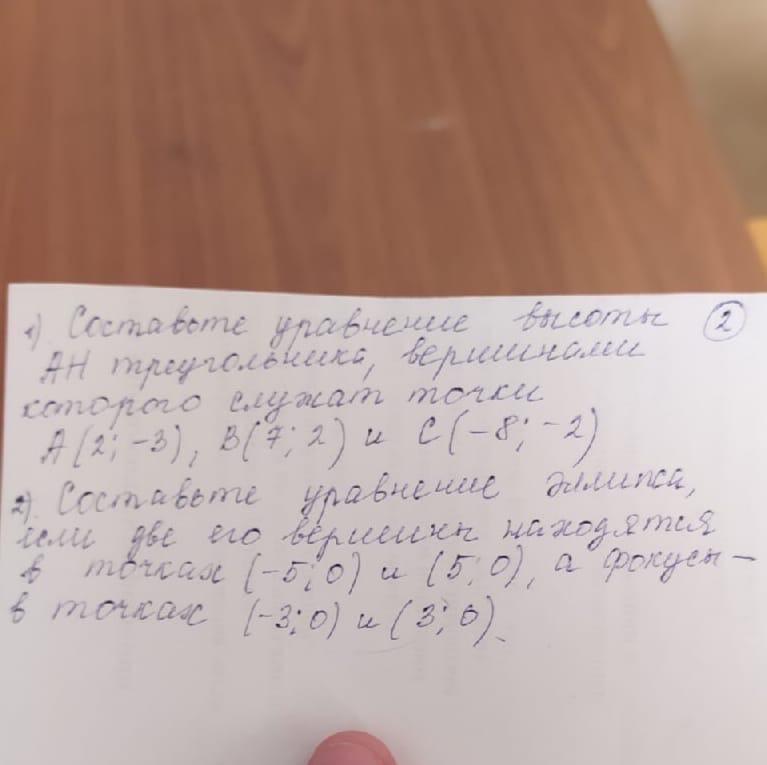 1) Составьте уравнение высоты ②
АН треугольника, вершинами
которого служат точки
А(2; -3), В(7; 2) и С(-8; -2)
2). Составьте уравнение эллипса,
если две его вершины находятся
в точках (-5; 0) и (5; 0), а фокусы –
в точках (-3; 0) и (3; 0).